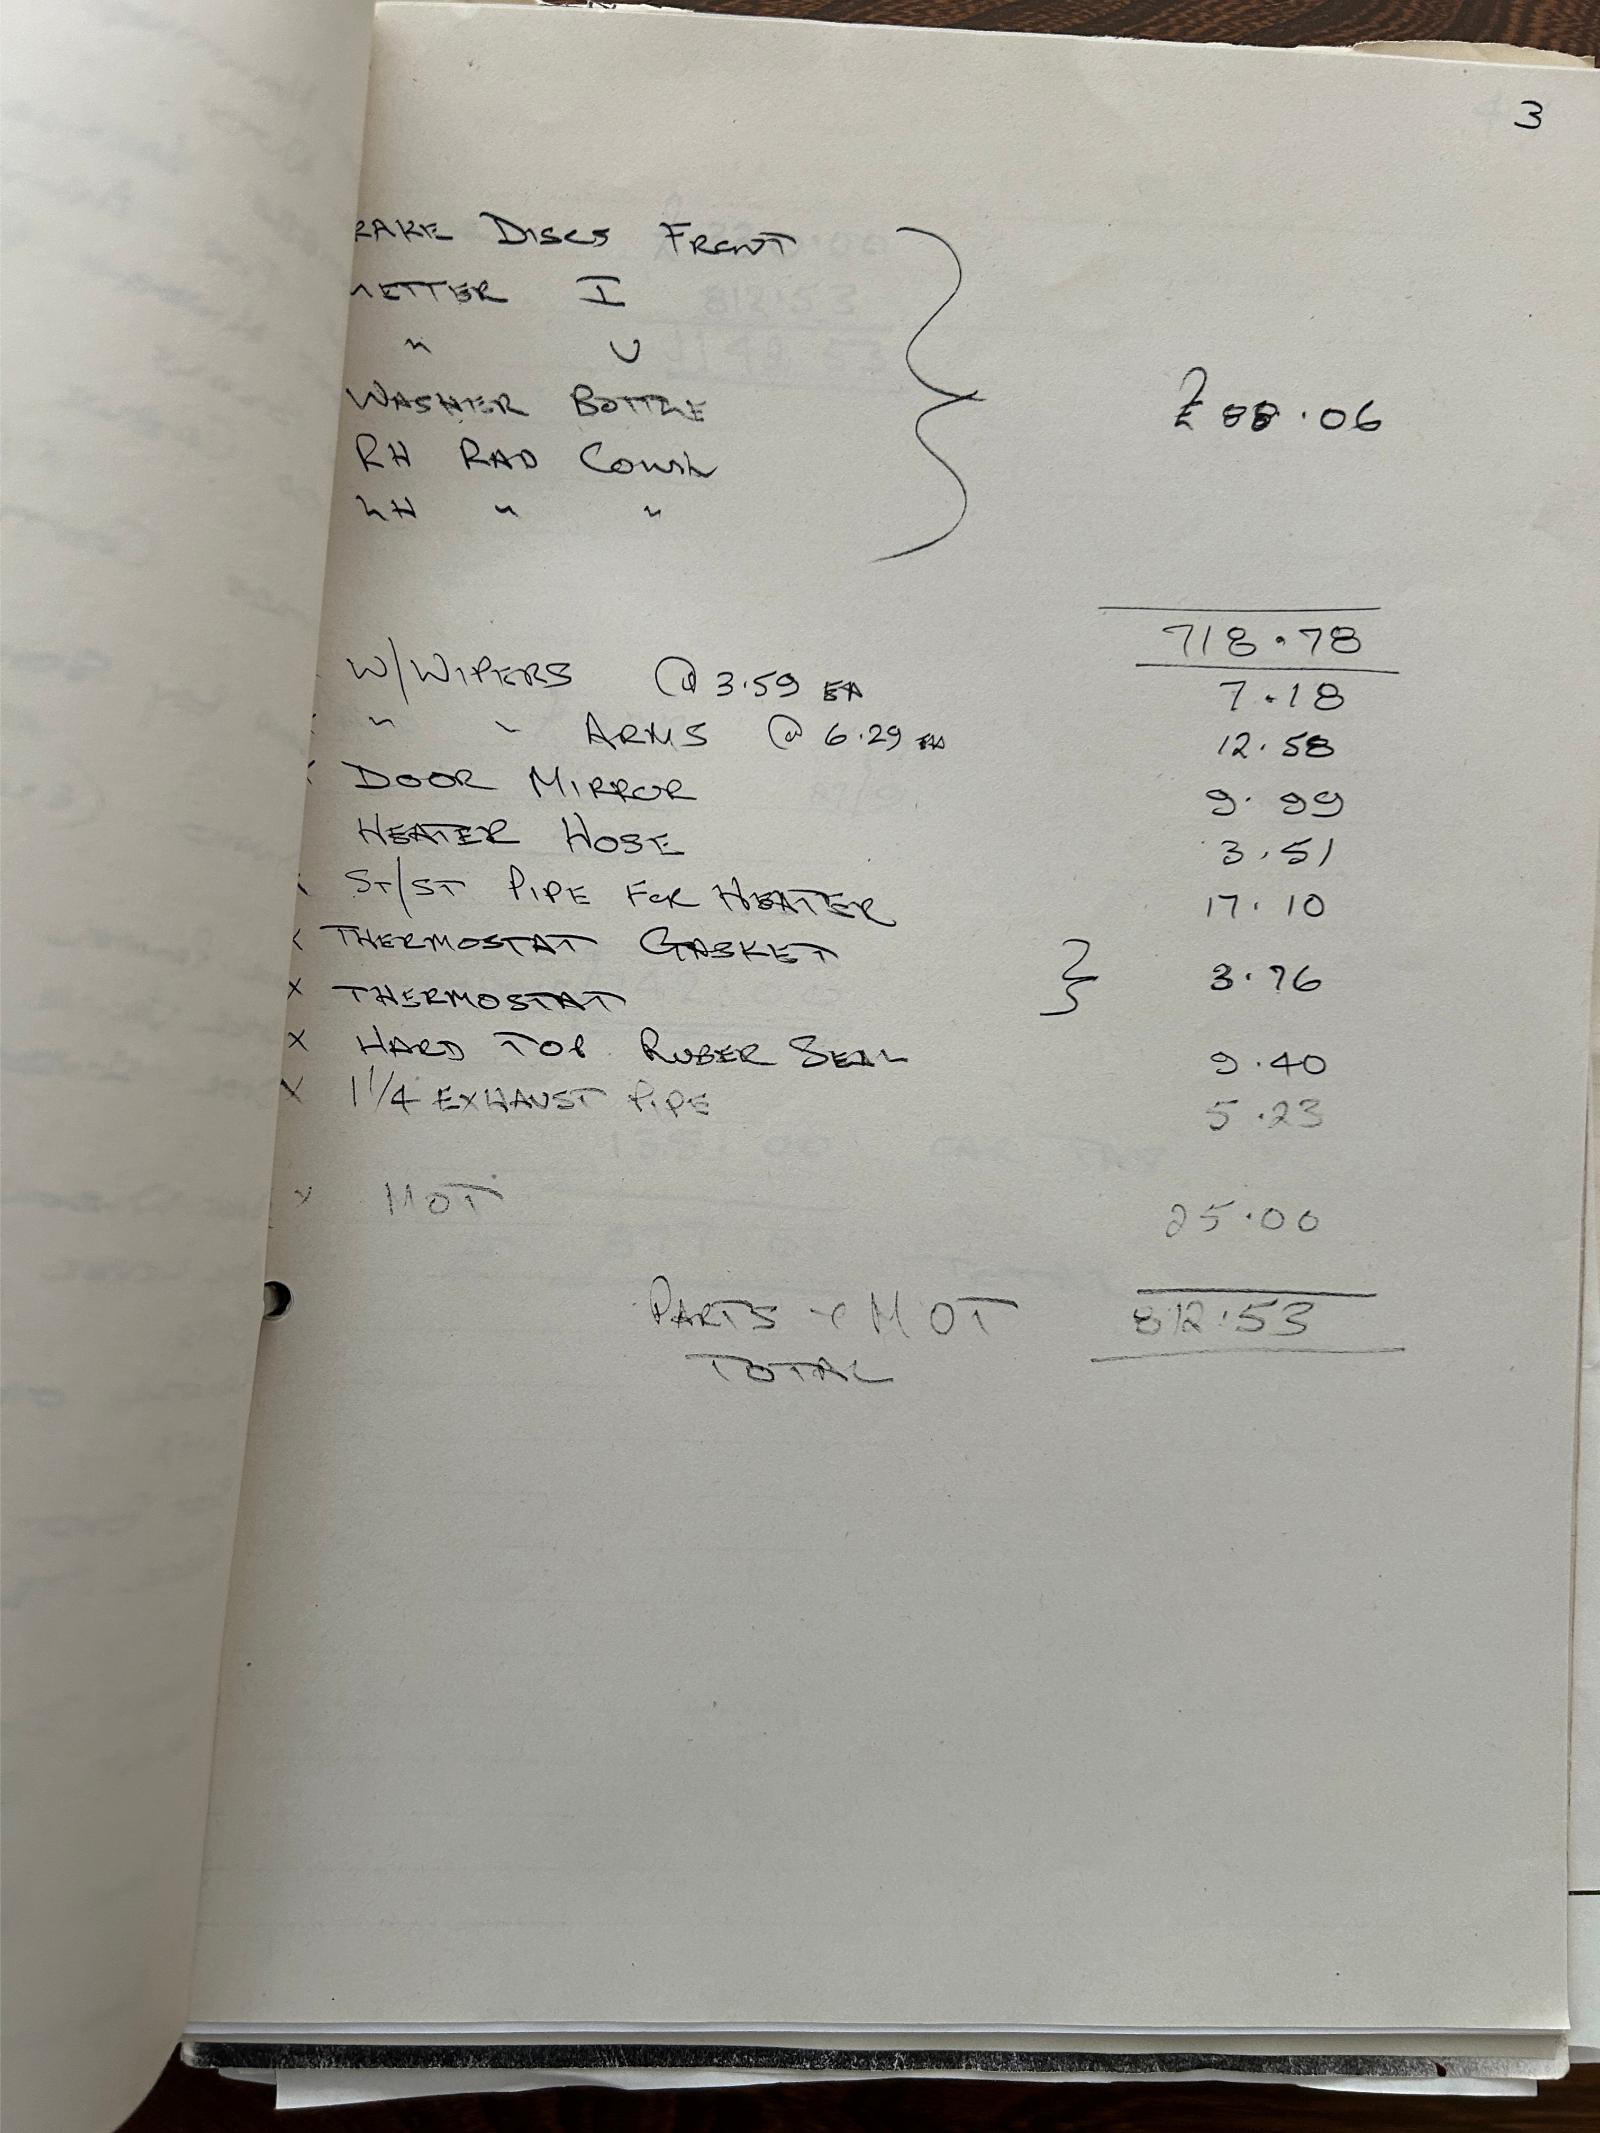 3
RAKE DISCS FRONT
METTER I
" U
WASHER BOTTLE
RH RAD COWL
LH " "
£88.06
718.78
W/WIPERS @ 3.59 EA 7.18
" " ARMS @ 6.29 EA 12.58
× DOOR MIRROR 9.99
HEATER HOSE 3.51
ST/ST PIPE FOR HEATER 17.10
× THERMOSTAT GASKET
× THERMOSTAT } 3.76
× HARD TOP RUBER SEAL 9.40
× 1 1/4 EXHAUST PIPE 5.23
× MOT 25.00
PARTS + MOT 812.53
TOTAL